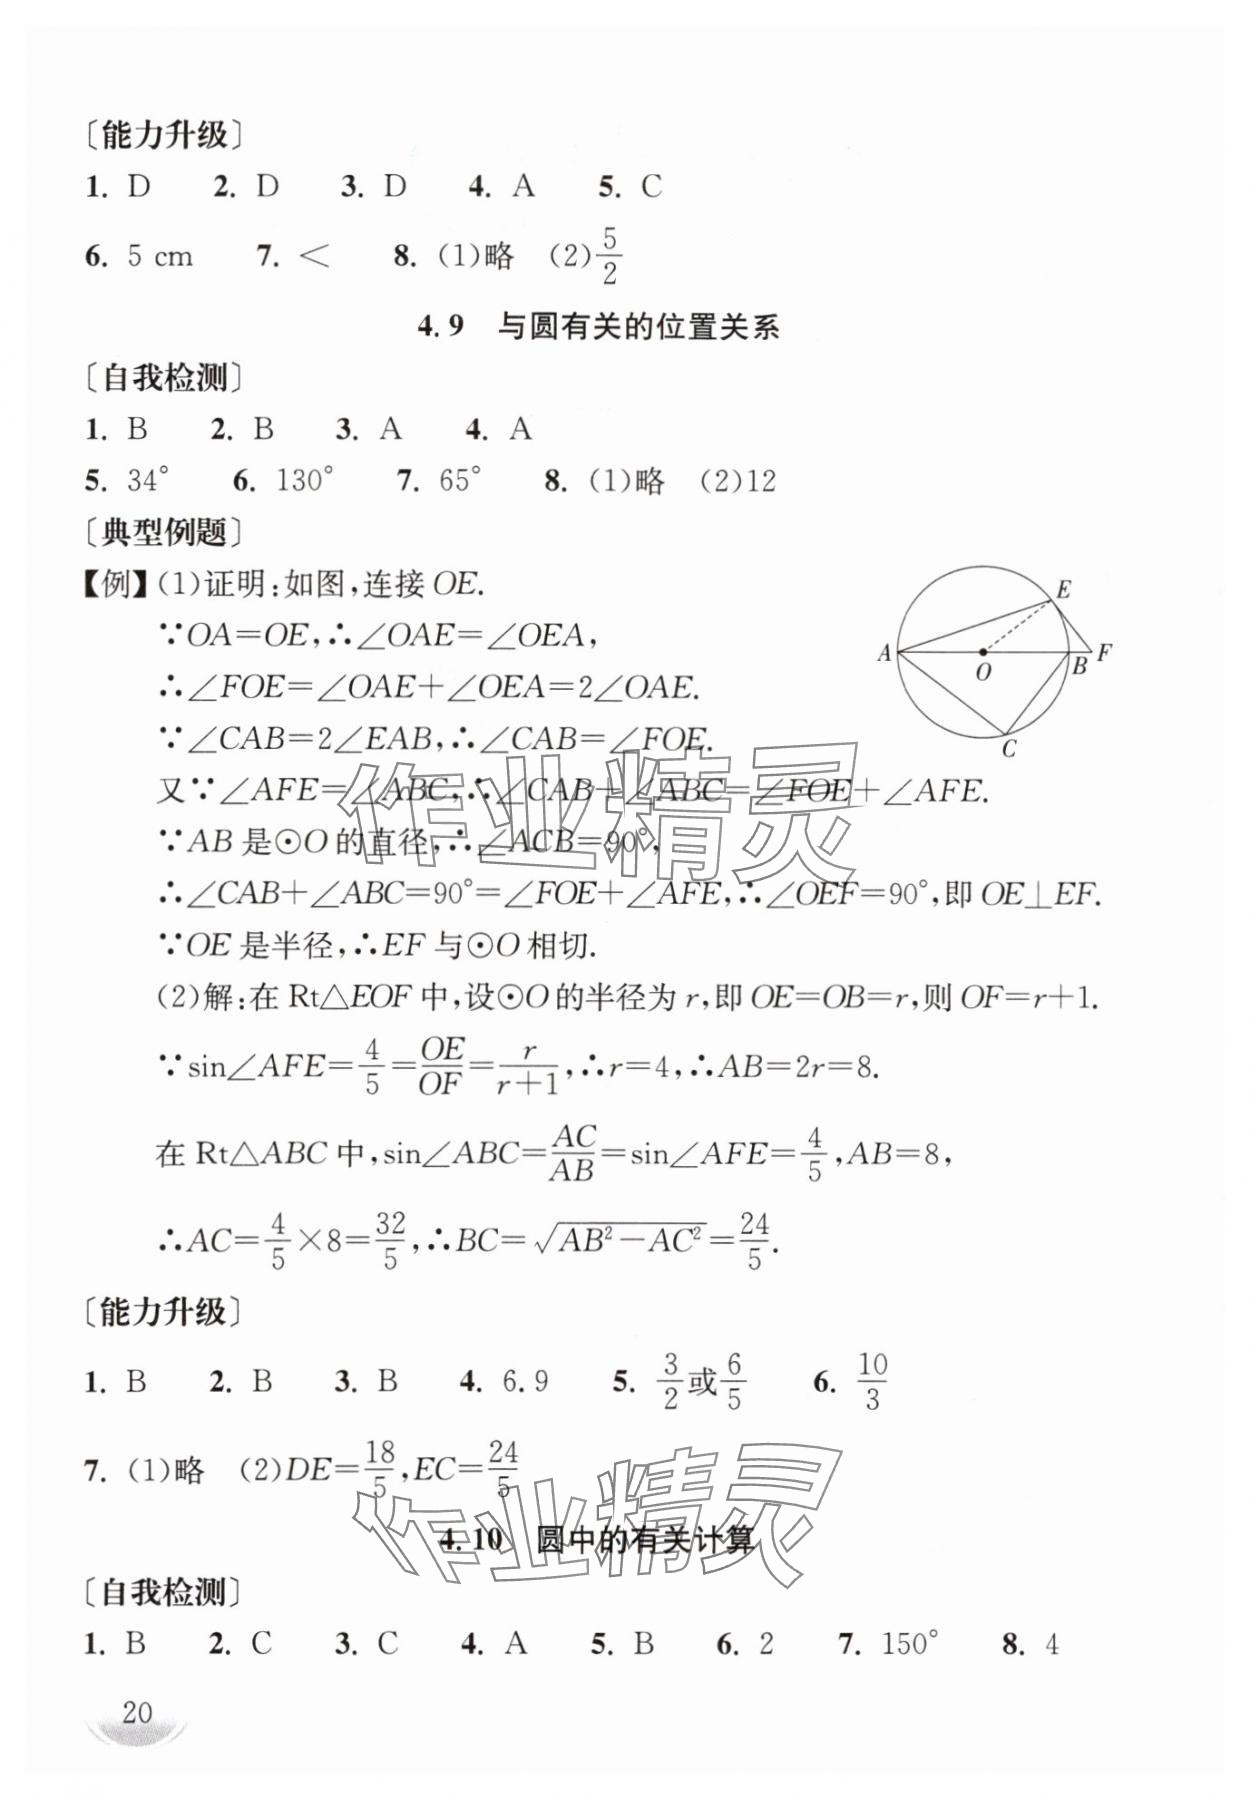 〔能力升级〕
1. D 2. D 3. D 4. A 5. C
6. 5 cm 7. < 8. (1)略 (2)5/2
4.9 与圆有关的位置关系
〔自我检测〕
1. B 2. B 3. A 4. A
5. 34° 6. 130° 7. 65° 8. (1)略 (2)12
〔典型例题〕
【例】(1)证明:如图,连接OE.
∵OA=OE,∴∠OAE=∠OEA,
∴∠FOE=∠OAE+∠OEA=2∠OAE.
∵∠CAB=2∠EAB,∴∠CAB=∠FOE.
又∵∠AFE=∠ABC,∴∠CAB+∠ABC=∠FOE+∠AFE.
∵AB是⊙O的直径,∴∠ACB=90°,
∴∠CAB+∠ABC=90°=∠FOE+∠AFE,∴∠OEF=90°,即OE⊥EF.
∵OE是半径,∴EF与⊙O相切.
A E F O B C
(2)解:在Rt△EOF中,设⊙O的半径为r,即OE=OB=r,则OF=r+1.
∵sin∠AFE=4/5=OE/OF=r/(r+1),∴r=4,∴AB=2r=8.
在Rt△ABC中,sin∠ABC=AC/AB=sin∠AFE=4/5,AB=8,
∴AC=4/5×8=32/5,∴BC=√(AB²-AC²)=24/5.
〔能力升级〕
1. B 2. B 3. B 4. 6.9 5. 3/2或6/5 6. 10/3
7. (1)略 (2)DE=18/5,EC=24/5
4.10 圆中的有关计算
〔自我检测〕
1. B 2. C 3. C 4. A 5. B 6. 2 7. 150° 8. 4
20
作业精灵
作业精灵